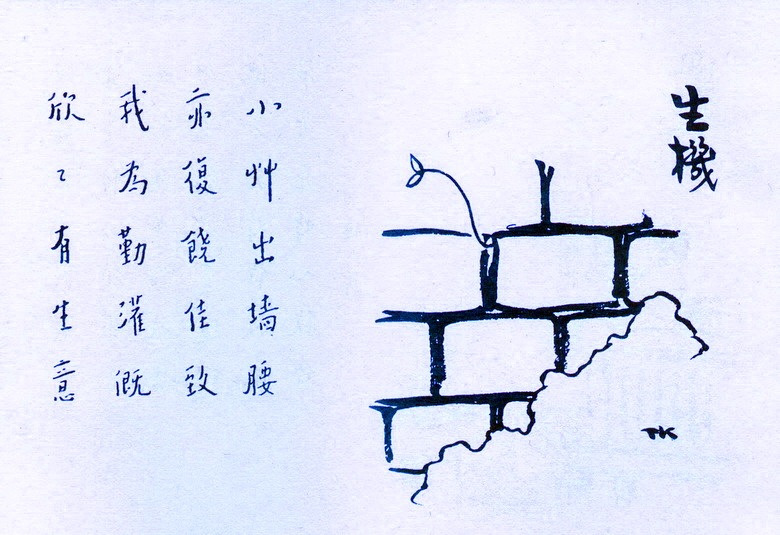 生機
小艸出墙腰
亦復饒佳致
我為勤灌溉
欣〻有生意
TK